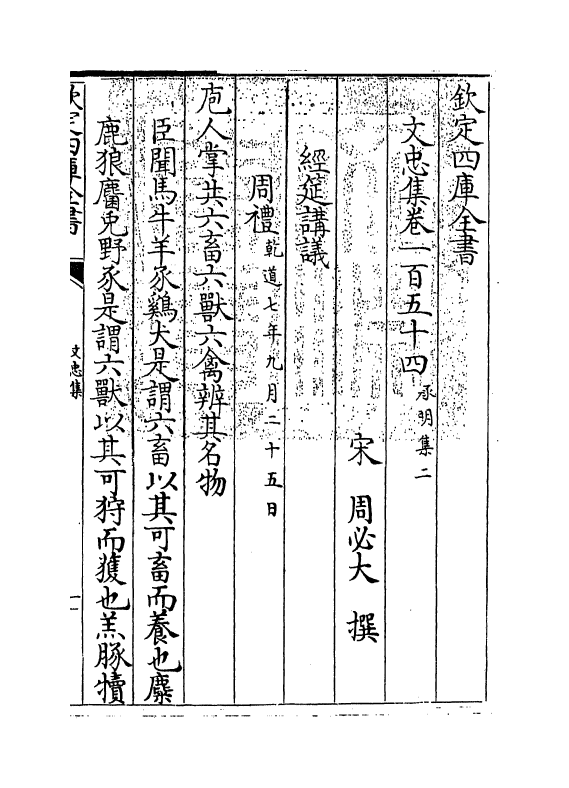 欽定四庫全書
文忠集卷一百五十四 承明集二
宋 周必大 撰
經筵講議
周禮 乾道七年九月二十五日
庖人掌共六畜六獸六禽辨其名物
臣聞馬牛羊豕雞犬是謂六畜以其可畜而養也麋
鹿狼麕兎野豕是謂六獸以其可狩而獲也羔豚犢
欽定四庫全書
文忠集
一